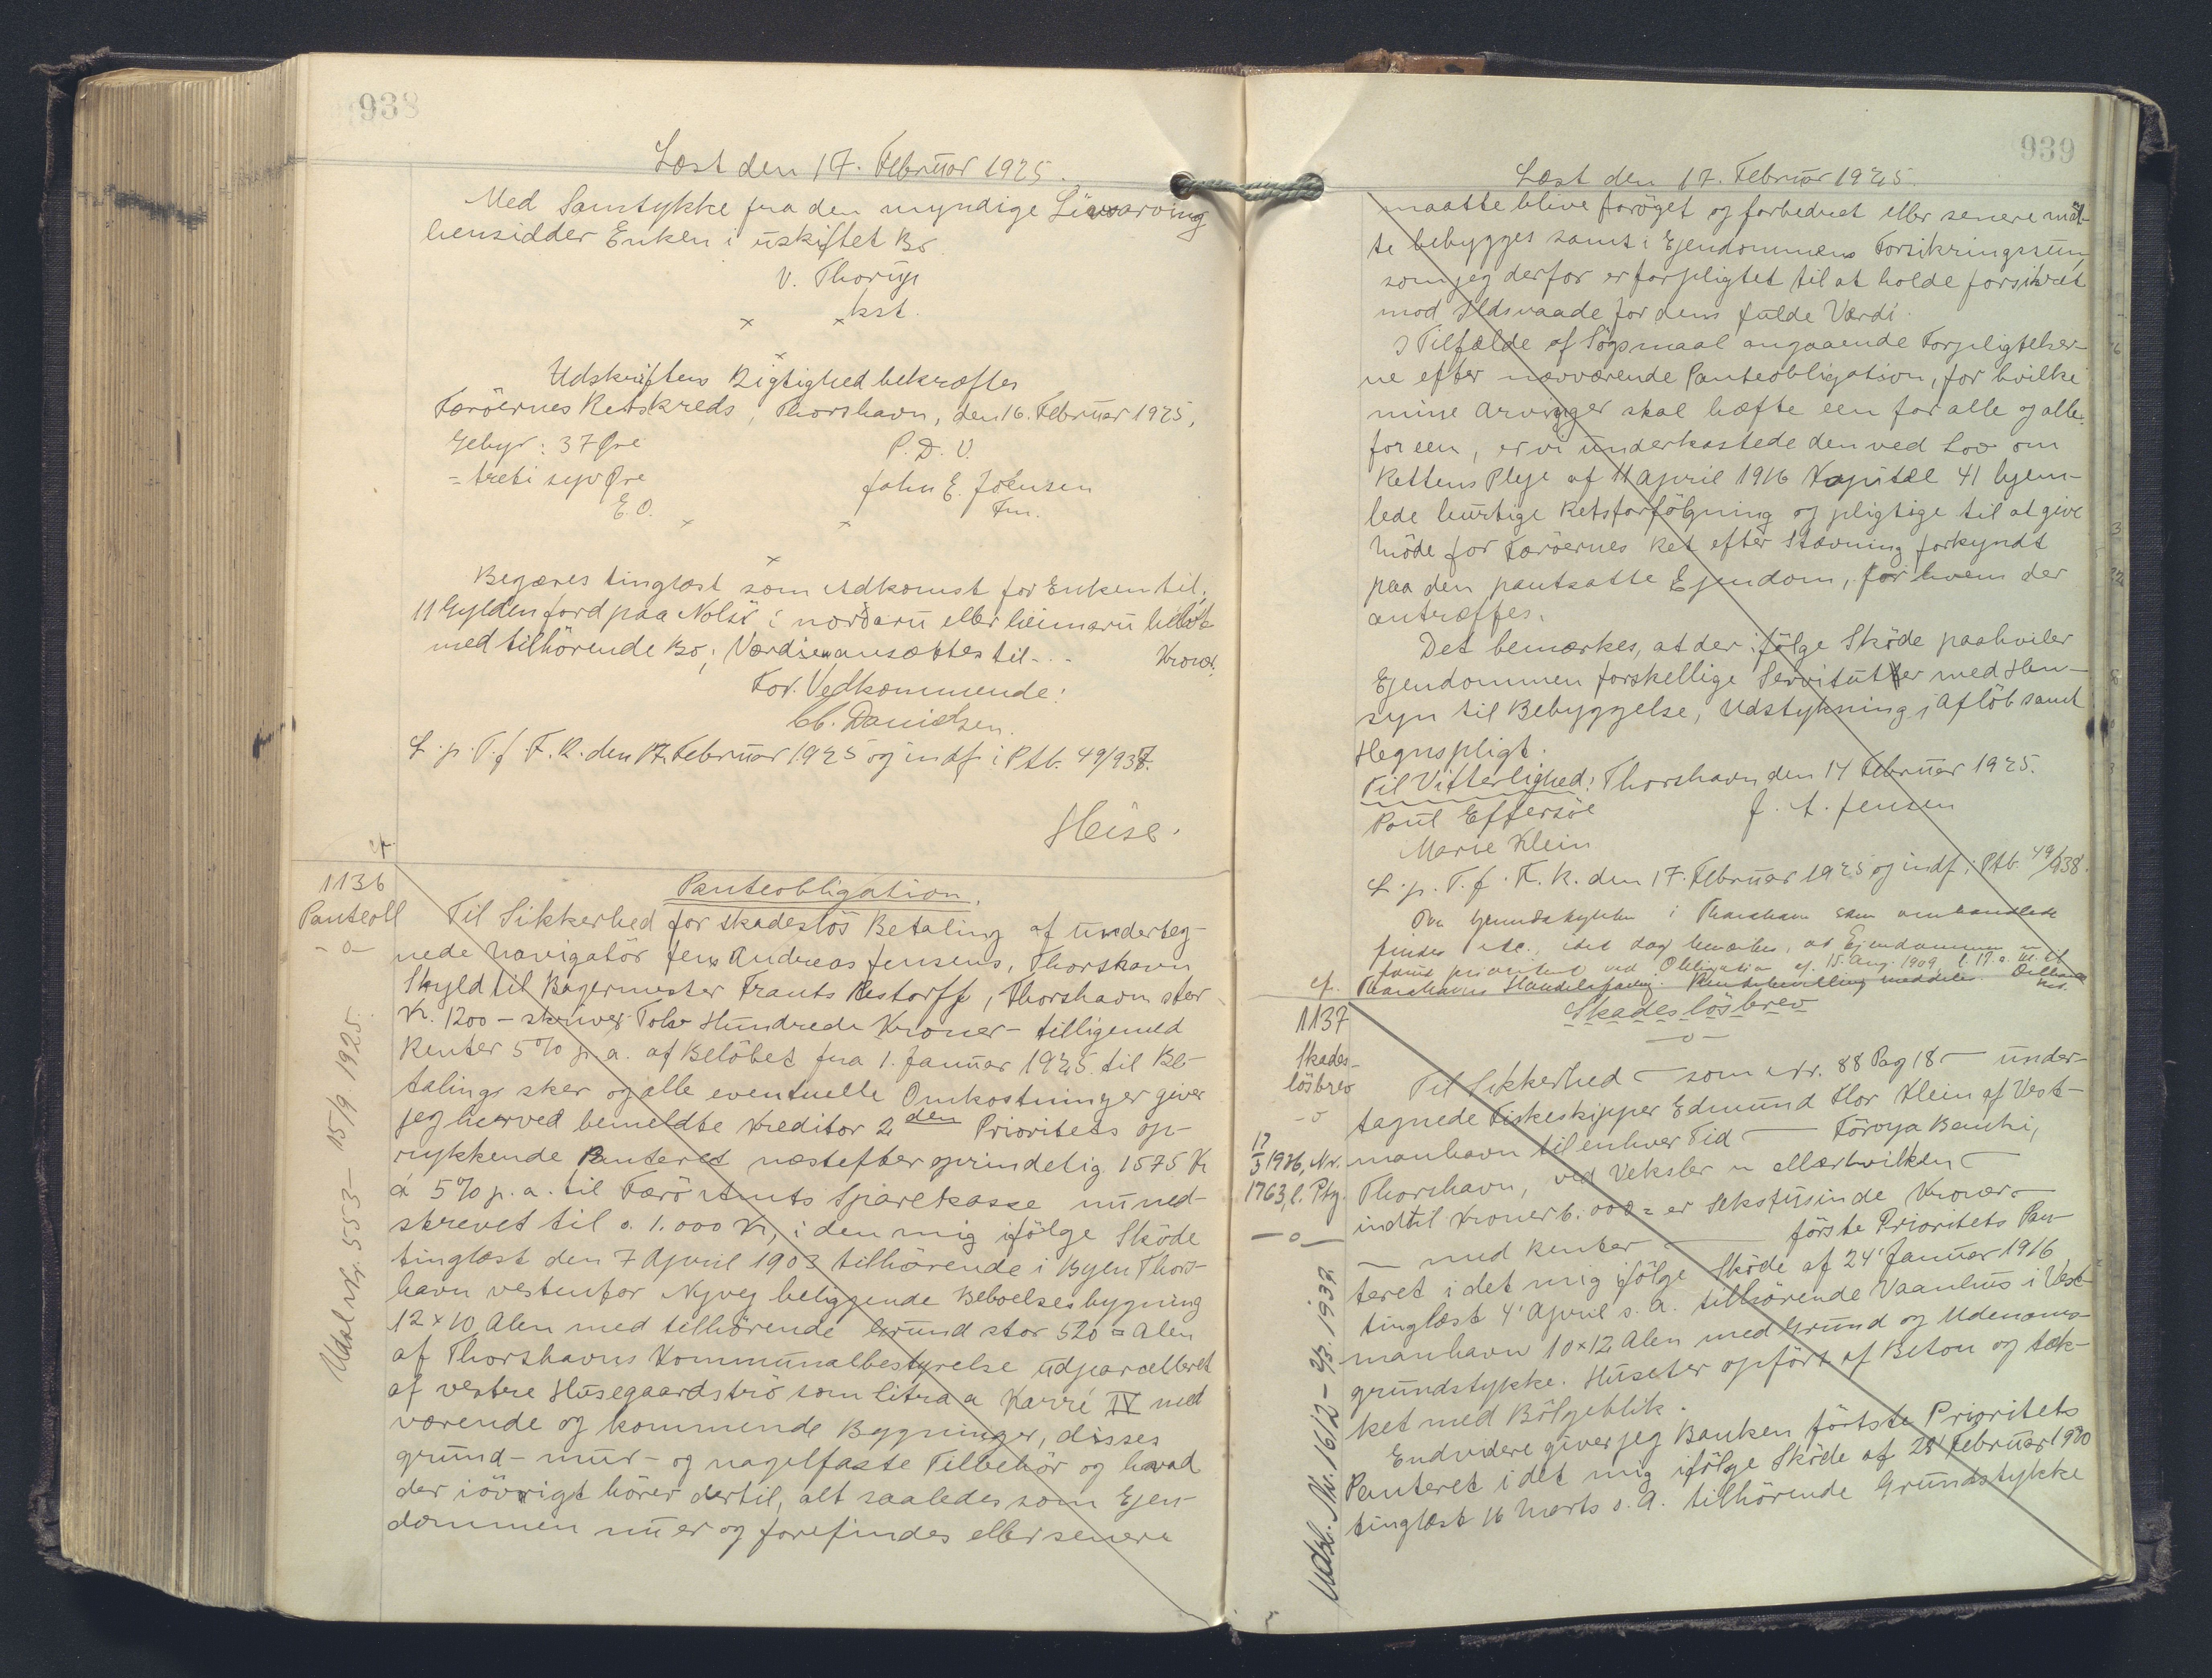 938
Læst den 17. Februar 1925.
Med Samtykke fra den myndige Livsarving
hensidder Enken i uskiftet Bo.
V. Thorup
kst.
Udskriftens Rigtighed bekræftes
Færöernes Retskreds, Thorshavn, den 16. Februar 1925.
Gebyr: 37 Øre
P. D. V.
= treti syv Øre
John E. Joensen
E.O.
Fm.
Begæres tinglæst som Adkomst for Enken til:
11 Gylden Jord paa Nolsö i norðaru eller heimaru
med tilhörende Bo; Værdien ansættes til - . - Kroner.
For Vedkommende:
Chr. Danielsen.
L. p. T. f. F. R. den 17. Februar 1925 og indf. i Ptb. 49/937.
Heise.
cf.
1136
Panteobl
-o-
Panteobligation.
Til Sikkerhed for skadeslös Betaling af underteg-
nede Navigatör Jens Andreas Jensens, Thorshavn
Skyld til Bagermester Frants Restorff, Thorshavn stor
Kr. 1200 - skriver Tolv Hundrede Kroner - tilligemed
Renter 5% p.a. af Belöbet fra 1. Januar 1925 til Be-
talings sker og alle eventuelle Omkostninger giver
jeg herved bemeldte Kreditor 2den Prioritets op-
rykkende Panteret næstefter oprindelig 1575 Kr
á 5% p.a. til Færö Amts Sparekasse nu ned-
skrevet til c. 1.000 Kr, i den mig ifölge Sköde
tinglæst den 7 April 1903 tilhörende i Byen Thors-
havn vestenfor Nyvej beliggende Beboelsesbygning
12 x 10 Alen med tilhörende Grund stor 520 □ Alen
af Thorshavns Kommunalbestyrelse udparcelleret
af vestre Husegaardströ som Litra a Karré IV med
værende og kommende Bygninger, disses
grund- mur- og nagelfaste Tilbehör og hvad
der iövrigt hörer dertil, alt saaledes som Ejen-
dommen nu er og forefindes eller senere
Udsl. Nr. 553 - 15/9 1925.
939
Læst den 17. Februar 1925.
maatte blive foröget og forbedret eller senere maat-
te bebygges samt i Ejendommens Forsikringssum,
som jeg derfor er forpligtet til at holde forsikret
mod Ildsvaade for dens fulde Værdi.
I Tilfælde af Sögsmaal angaaende Forpligtelser-
ne efter nærværende Panteobligation, for hvilke
mine Arvinger skal hæfte een for alle og alle
for een, er vi underkastede den ved Lov om
Rettens Pleje af 11 April 1916 Kapitel 41 hjem-
lede hurtige Retsforfölgning og pligtige til at give
Möde for Færöernes Ret efter Stævning forkyndt
paa den pantsatte Ejendom, for hvem der
antræffes.
Det bemærkes, at der ifölge Sköde paahviler
Ejendommen forskellige Servitutter med Hen-
syn til Bebyggelse, Udstykning, Aflöb samt
Hegnspligt.
Til Vitterlighed: Thorshavn den 14 Februar 1925.
Poul Effersöe
J. A. Jensen
Marie Klein
L. p. T. f. F. R. den 17. Februar 1925 og indf. i Ptb. 49/938.
Grundstykke i Thorshavn som omhandlede
findes etc., idet dog bemærkes, at Ejendommen
er prioriteret ved Obligation af 15. Aug. 1909, l. 17. s. M. til
Thorshavns Handelsforening. meddeles.
cf.
1137
Skades-
lösbrev
-o
17/3 1926, Nr.
1763, l. Ptg.
-o-
Skadeslösbrev
-o-
Til Sikkerhed - som Nr. 88 Pag 18 - under-
tegnede Fiskeskipper Edmund Hor Klein af Vest-
manhavn til enhver Tid - Föroya Banki,
Thorshavn, ved Veksler - eller hvilken -
indtil Kroner 6.000 = er Sekstusinde Kroner -
- med Renter - förste Prioritets Pan-
teret i det mig ifölge Sköde af 24' Januar 1916
tinglæst 4' April s. A. tilhörende Vaanhus i Vest-
manhavn 10 x 12 Alen med Grund og Udenoms-
grundstykke. Huset er opfört af Beton og tæk-
ket med Bölgeblik.
Endvidere giver jeg Banken förtste Prioritets
Panteret i det mig ifölge Sköde af 28' Februar 1920
tinglæst 16 Marts s. A. tilhörende Grundstykke
Udsl. Nr. 1612 - 2/3. 1932.